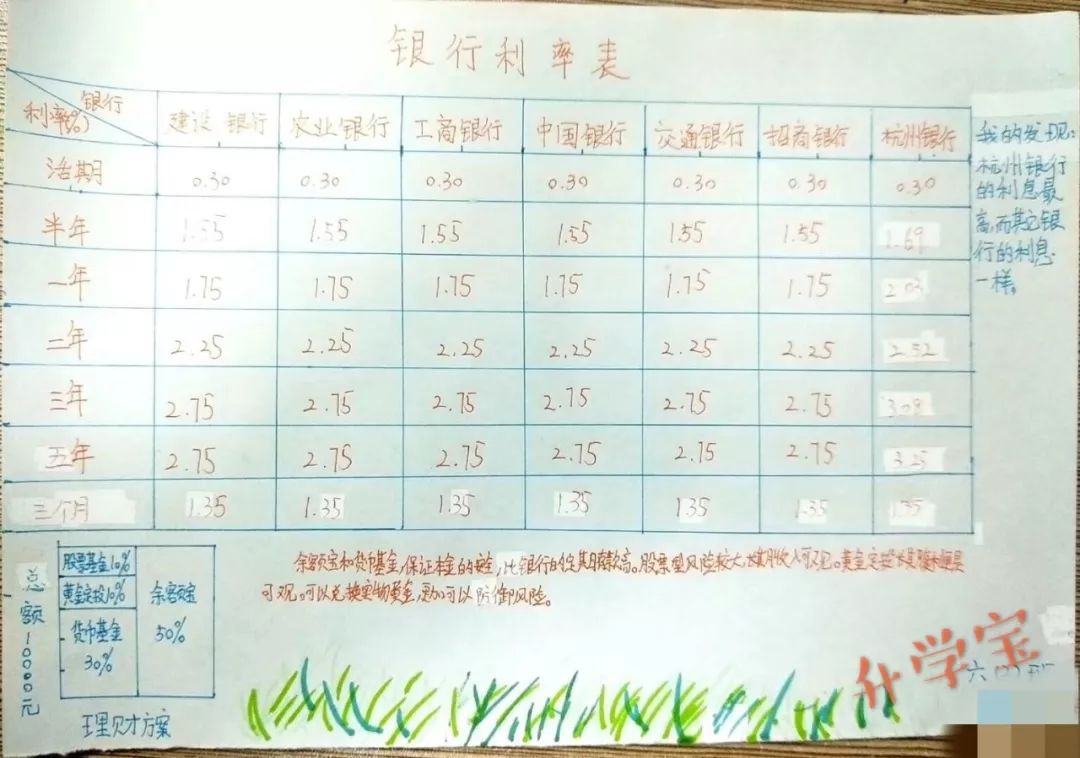 银行利率表
银行
利率(%) 建设银行 农业银行 工商银行 中国银行 交通银行 招商银行 杭州银行
活期 0.30 0.30 0.30 0.30 0.30 0.30 0.30
半年 1.55 1.55 1.55 1.55 1.55 1.55 1.69
一年 1.75 1.75 1.75 1.75 1.75 1.75 2.03
二年 2.25 2.25 2.25 2.25 2.25 2.25 2.52
三年 2.75 2.75 2.75 2.75 2.75 2.75 3.08
五年 2.75 2.75 2.75 2.75 2.75 2.75 3.25
三个月 1.35 1.35 1.35 1.35 1.35 1.35
我的发现:
杭州银行
的利息最
高,而其它银
行的利息
一样。
总额10000元
股票基金10%
黄金定投10%
货币基金
30%
余额宝
50%
理财方案
余额宝和货币基金,保证本金的安全,比银行的定期存款高。股票型风险较大,长期收入可观。黄金定投长期
可观。可以兑换实物黄金,更可以防御风险。
升学宝